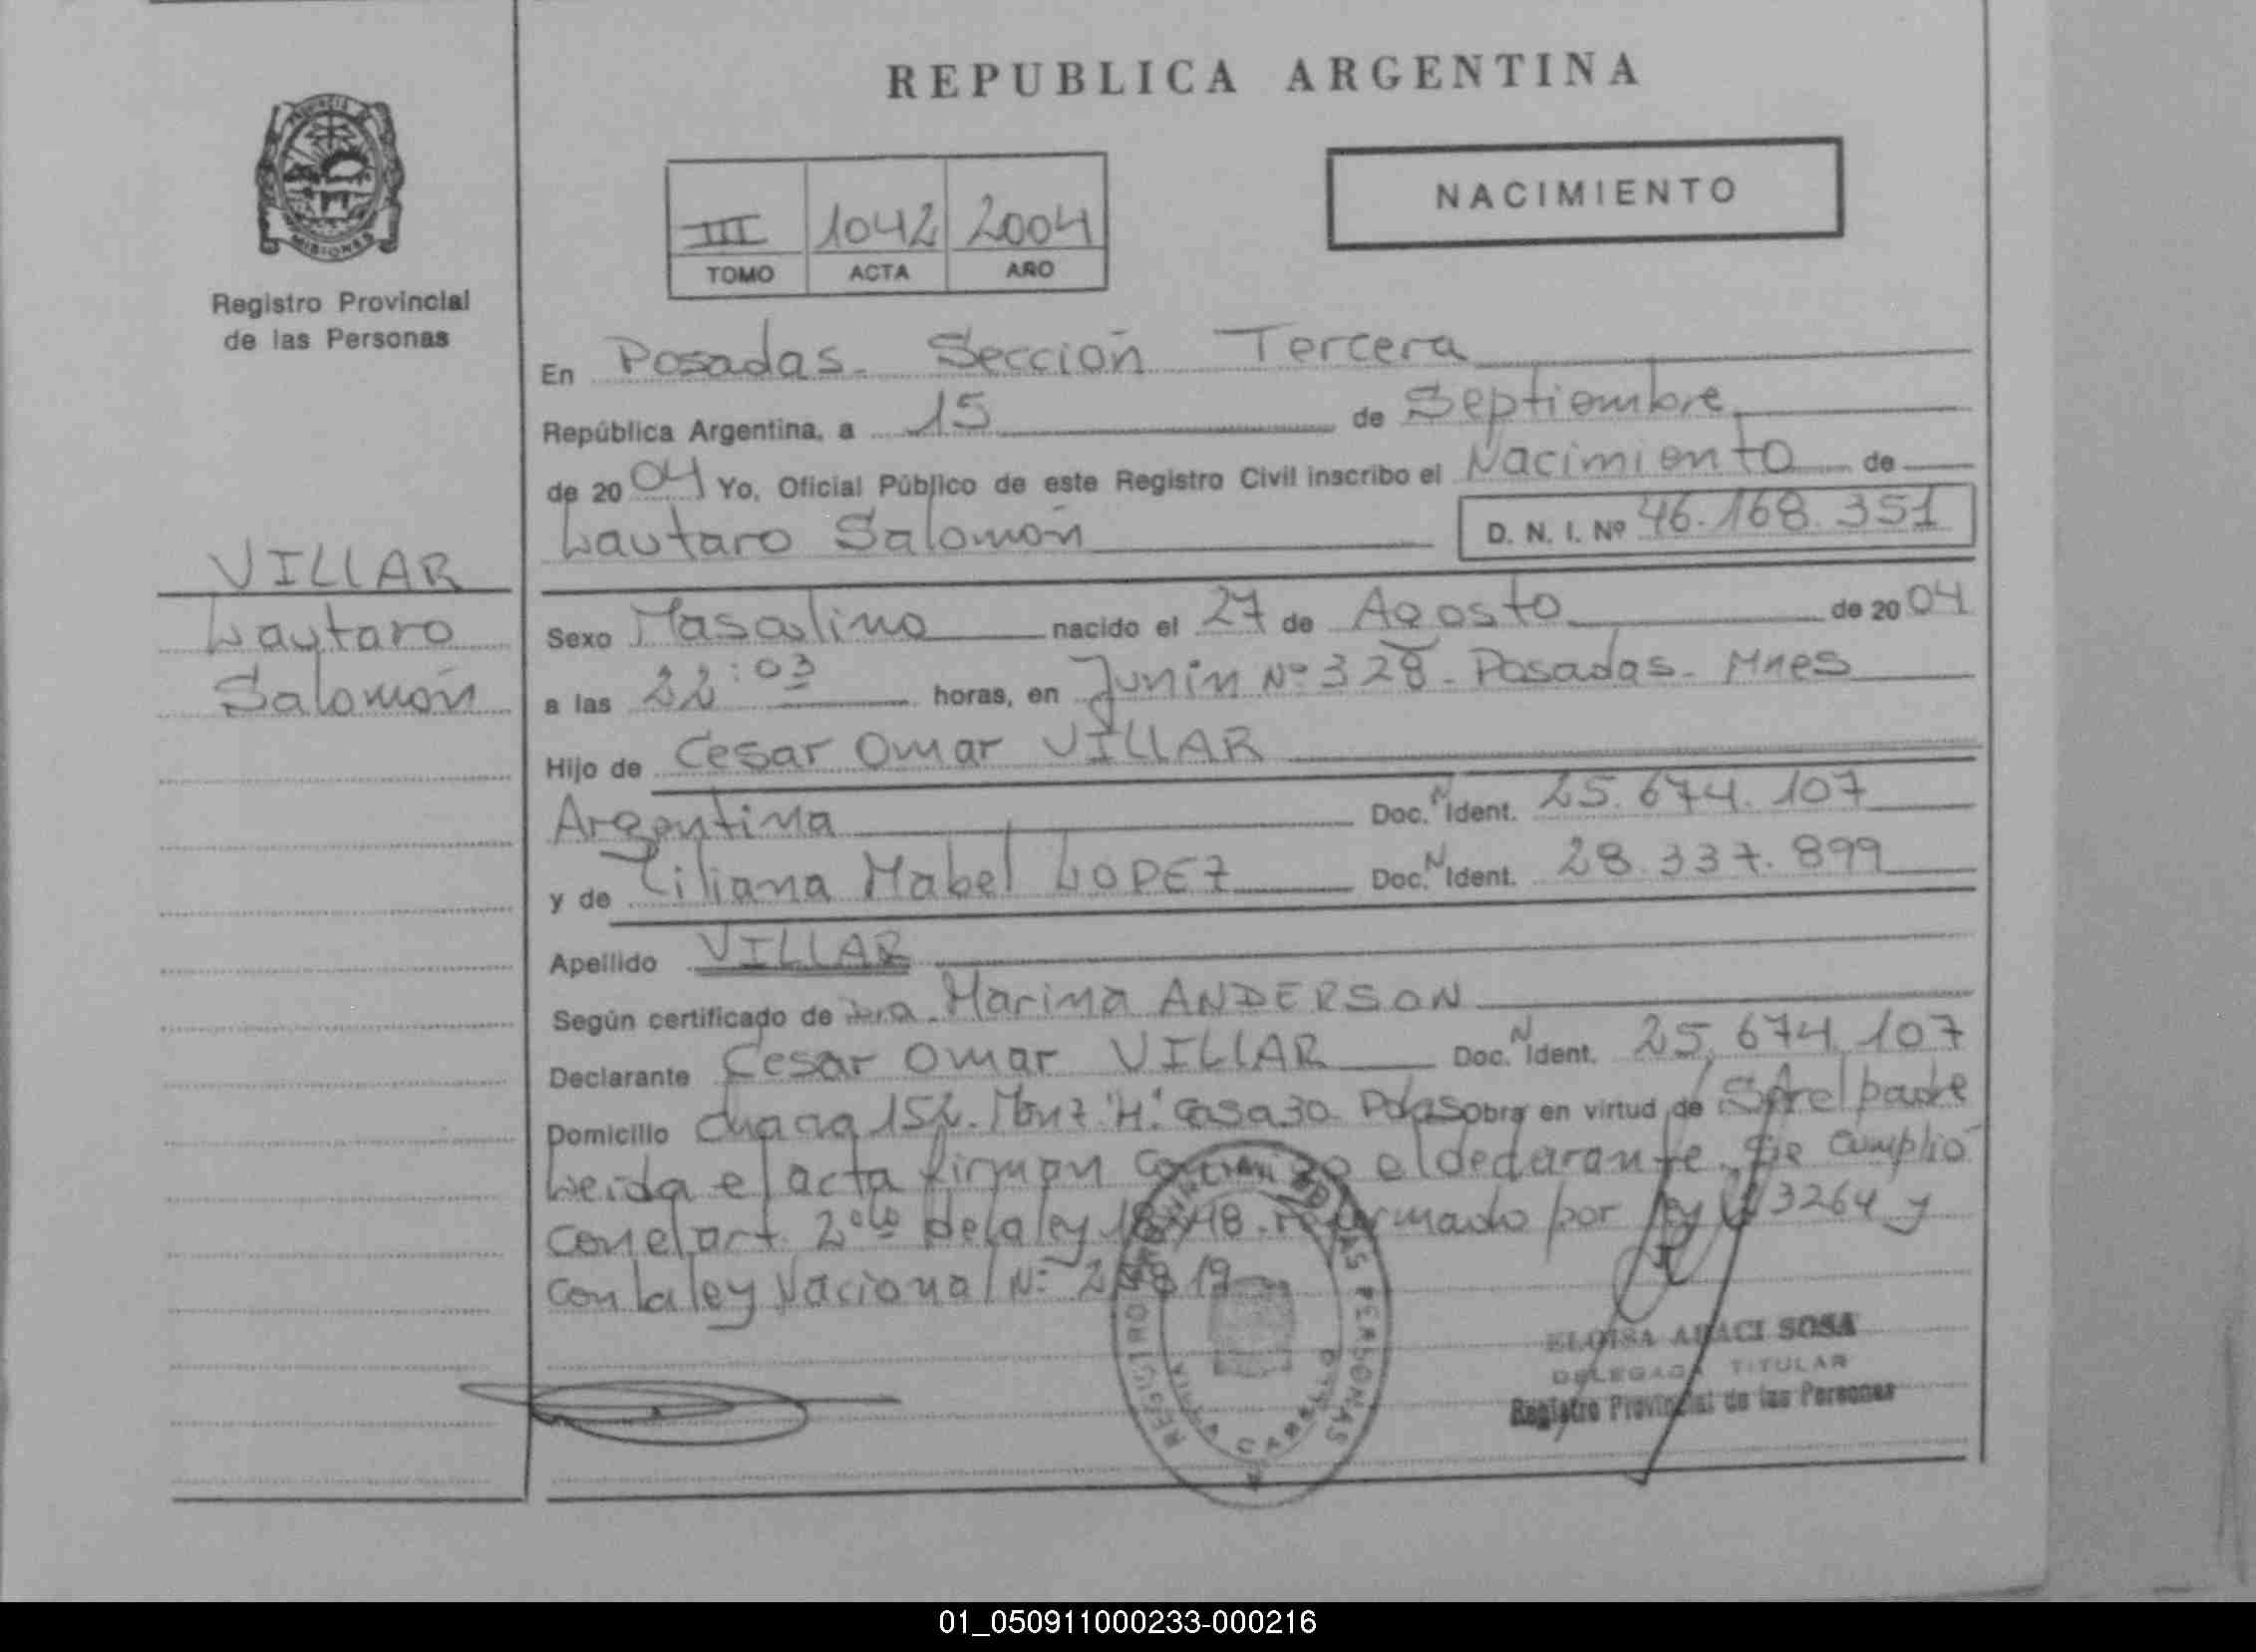 REPUBLICA ARGENTINA
NACIMIENTO
III 1042 2004
TOMO ACTA AÑO
MISIONES
Registro Provincial
de las Personas
VILLAR
Lautaro
Salomón
En Posadas. Sección Tercera
República Argentina, a 15 de Septiembre
de 2004 Yo, Oficial Público de este Registro Civil inscribo el Nacimiento de
Lautaro Salomón D. N. I. Nº 46.168.351
Sexo Masculino nacido el 27 de Agosto de 2004
a las 22:03 horas, en Junín Nº 328. Posadas. Mnes
Hijo de Cesar Omar VILLAR
Argentina Doc. N Ident. 25.674.107
y de Liliana Mabel LOPEZ Doc. N Ident. 28.337.899
Apellido VILLAR
Según certificado de Dra. Marina ANDERSON
Declarante Cesar Omar VILLAR Doc. N Ident. 25.674.107
Domicilio Chacra 152. Monz "H" Casa 30 Pdas Obra en virtud de Ser el padre
Leida el acta firman conmigo el declarante. Se cumplió
con el art. 2º de la ley 18248. reformado por ley 23264 y
con la ley Nacional Nº
REGISTRO PROVINCIAL DE LAS PERSONAS
ELOISA ARACI SOSA
DELEGADA TITULAR
Registro Provincial de las Personas
01_050911000233-000216